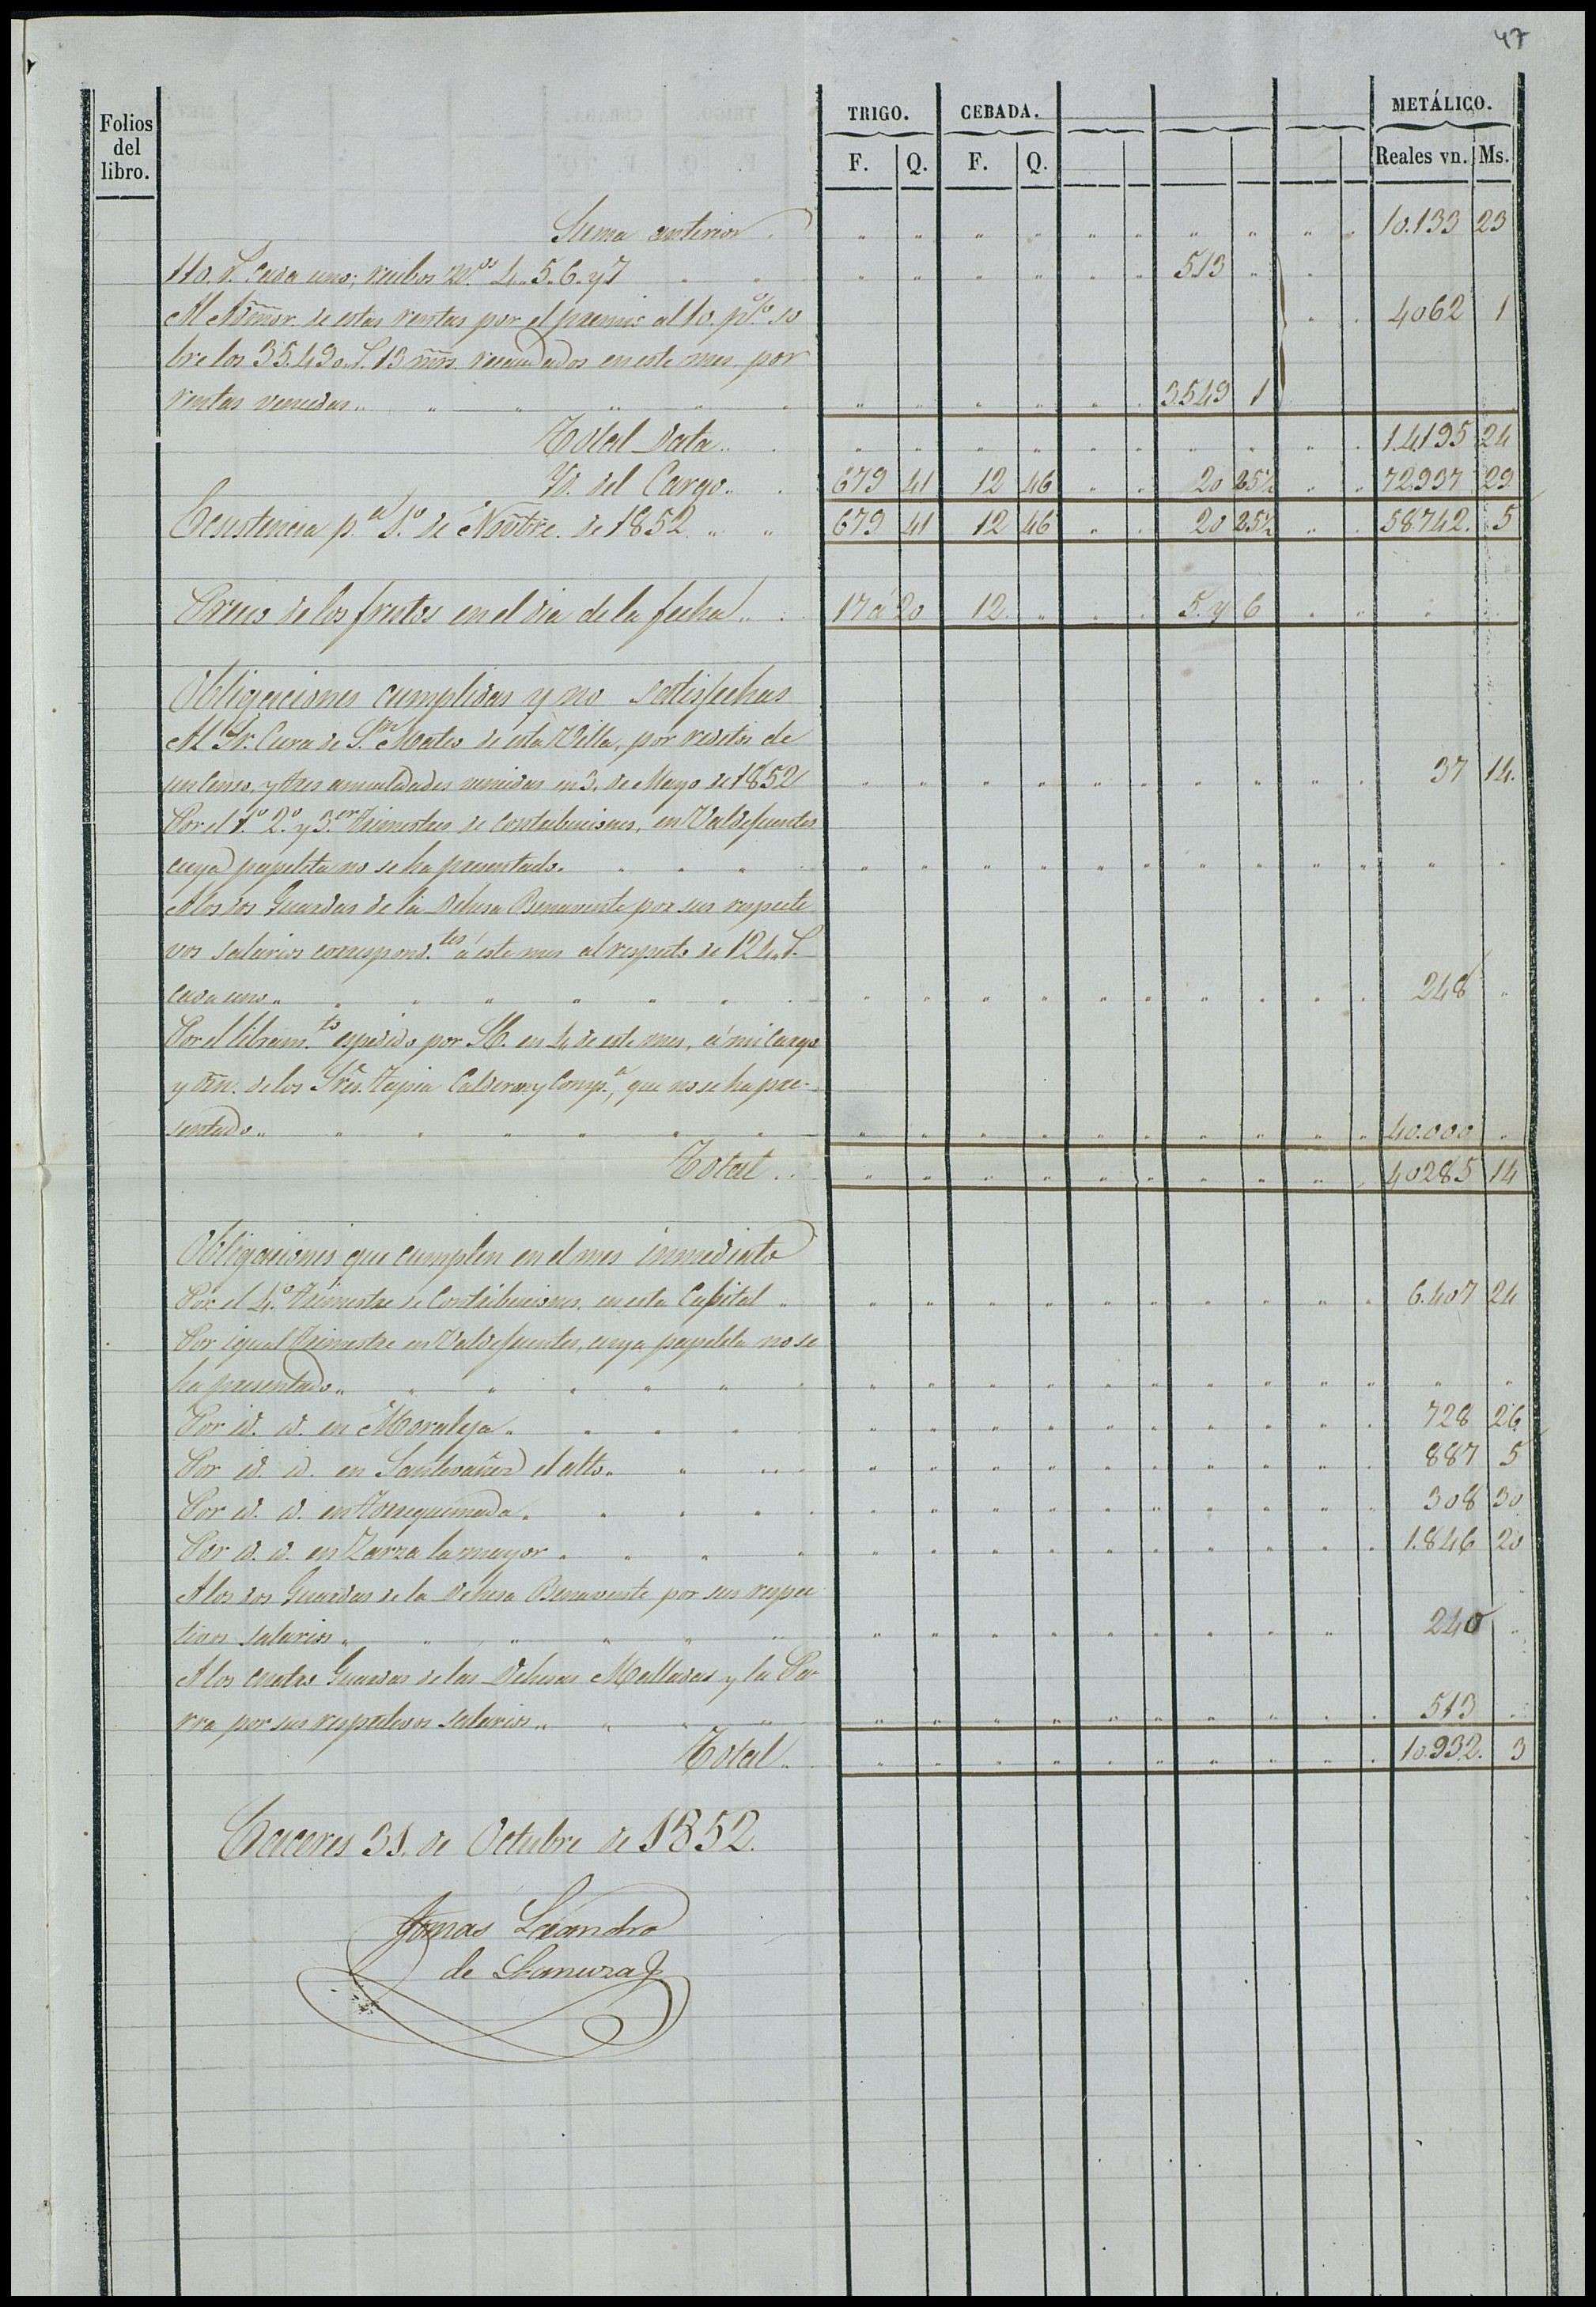 47
Folios del libro.
TRIGO. CEBADA. METÁLICO.
F. Q. F. Q. Reales vn. Ms.
Suma anterior 10.133 23
110. r. cada uno; recibos nos. 4. 5. 6. y 7 513
Al Admor. de estas rentas por el premio al 10. p% so 4062 1
bre los 35.490. r. 13 mrs. recaudados en este mes por
rentas vencidas 3.549 1
Total Data 14.195 24
Id. del Cargo 679 41 12 46 20 25½ 72.937 29
Ecsistencia p.ª 1.º de Nbre. de 1852 679 41 12 46 20 25½ 58.742. 5
Precio de los frutos en el dia de la fecha 17 á 20 12 5. y 6
Obligaciones cumplidas y no satisfechas
Al Sr. Cura de Sn. Mateo de esta Villa, por reditos de
un censo, y tres anualidades vencidas en 3. de Mayo de 1852 37 14.
Por el 1.º 2.º y 3.er Trimestres de Contribuciones, en Valdefuentes
cuya papeleta no se ha presentado.
A los dos Guardas de la Dehesa Benavente por sus respecti
vos salarios correspond.tes á este mes al respecto de 124. r.
cada uno 248
Por el libram.to espedido por SE. en 4 de este mes, á mi cargo
y orn. de los Sres. Tapia Calderon y Comp.ª, que no se ha pre-
sentado 40.000
Total 40285 14
Obligaciones que cumplen en el mes inmediato
Por el 4.º Trimestre de Contribuciones, en esta Capital 6.407 24
Por igual Trimestre en Valdefuentes, cuya papeleta no se
ha presentado
Por id. id. en Moraleja 728 26
Por id. id. en Santivañez el alto 887 5
Por id. id. en Torrequemada 308 30
Por id. id. en Zarza la mayor 1.846 20
A los dos Guardas de la Dehesa Benavente por sus respec
tivos salarios 240
A los cuatro Guardas de las Dehesas Malladas y la Par
rra por sus respectivos salarios 513
Total 10.932. 3
Caceres 31. de Octubre de 1852.
Tomas Leandro
de